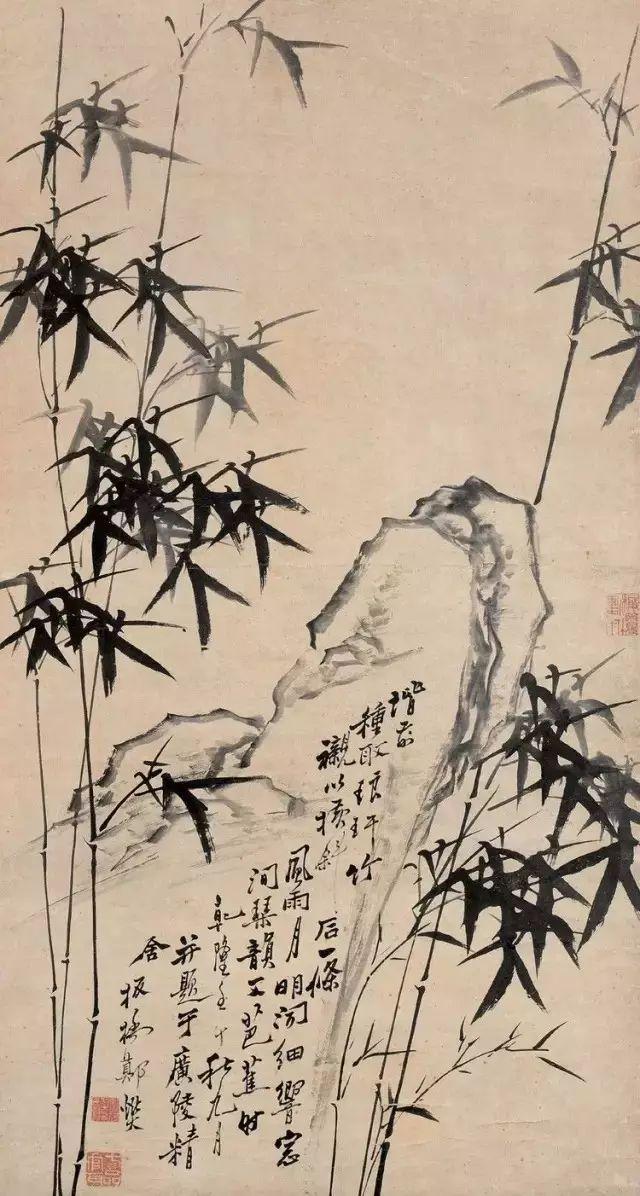 階前
種取琅玕竹
襯以横斜石一條
風雨月明聞細響窓
間琴韻下芭蕉時
乾隆壬午秋九月
并題于廣陵精
舍板橋鄭燮